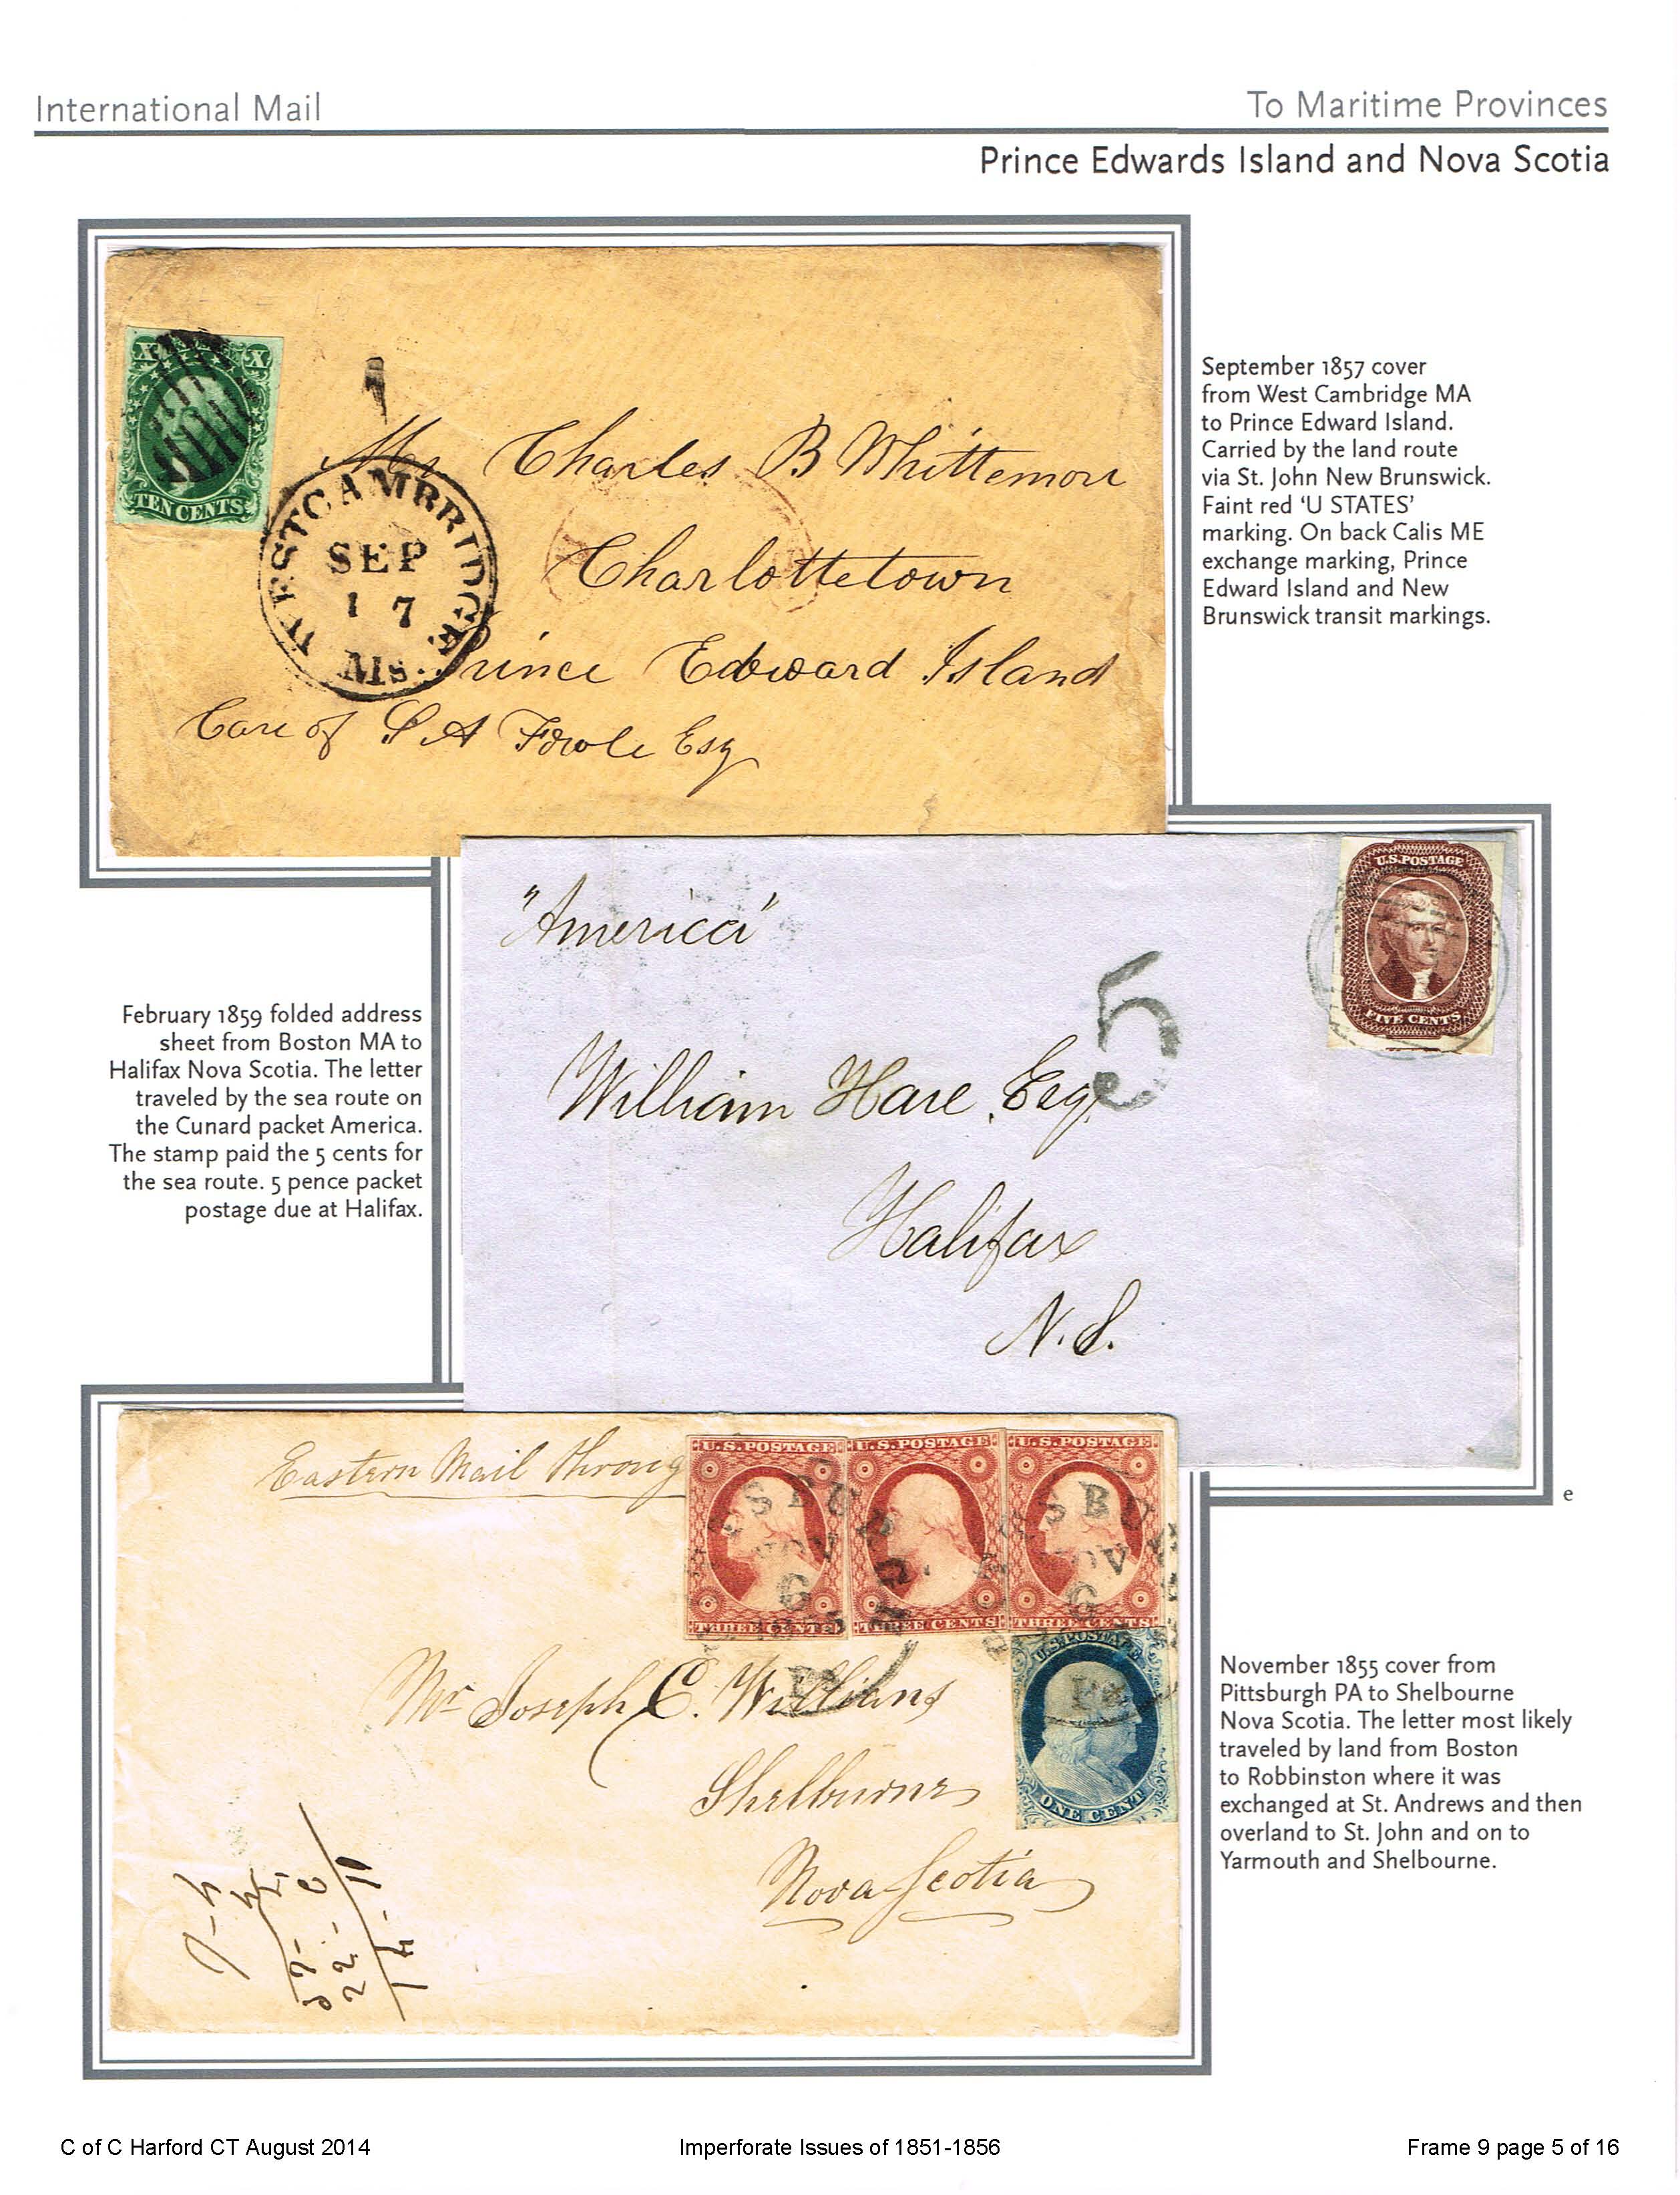 International Mail
To Maritime Provinces
Prince Edwards Island and Nova Scotia
X X
TEN CENTS
Mr Charles B Whittemore
Charlottetown
Prince Edward Island
Care of S A Fowle Esq
WEST CAMBRIDGE
SEP
17
Ms.
September 1857 cover
from West Cambridge MA
to Prince Edward Island.
Carried by the land route
via St. John New Brunswick.
Faint red ‘U STATES’
marking. On back Calis ME
exchange marking, Prince
Edward Island and New
Brunswick transit markings.
"America"
U.S. POSTAGE
FIVE CENTS
5
William Hare Esqr
Halifax
N.S.
February 1859 folded address
sheet from Boston MA to
Halifax Nova Scotia. The letter
traveled by the sea route on
the Cunard packet America.
The stamp paid the 5 cents for
the sea route. 5 pence packet
postage due at Halifax.
e
Eastern Mail throug
U.S. POSTAGE U.S. POSTAGE U.S. POSTAGE
THREE CENTS THREE CENTS THREE CENTS
NOV
6
U.S. POSTAGE
ONE CENT
Mr Joseph C. Williams
Shelburne
Nova Scotia
November 1855 cover from
Pittsburgh PA to Shelbourne
Nova Scotia. The letter most likely
traveled by land from Boston
to Robbinston where it was
exchanged at St. Andrews and then
overland to St. John and on to
Yarmouth and Shelbourne.
C of C Harford CT August 2014
Imperforate Issues of 1851-1856
Frame 9 page 5 of 16